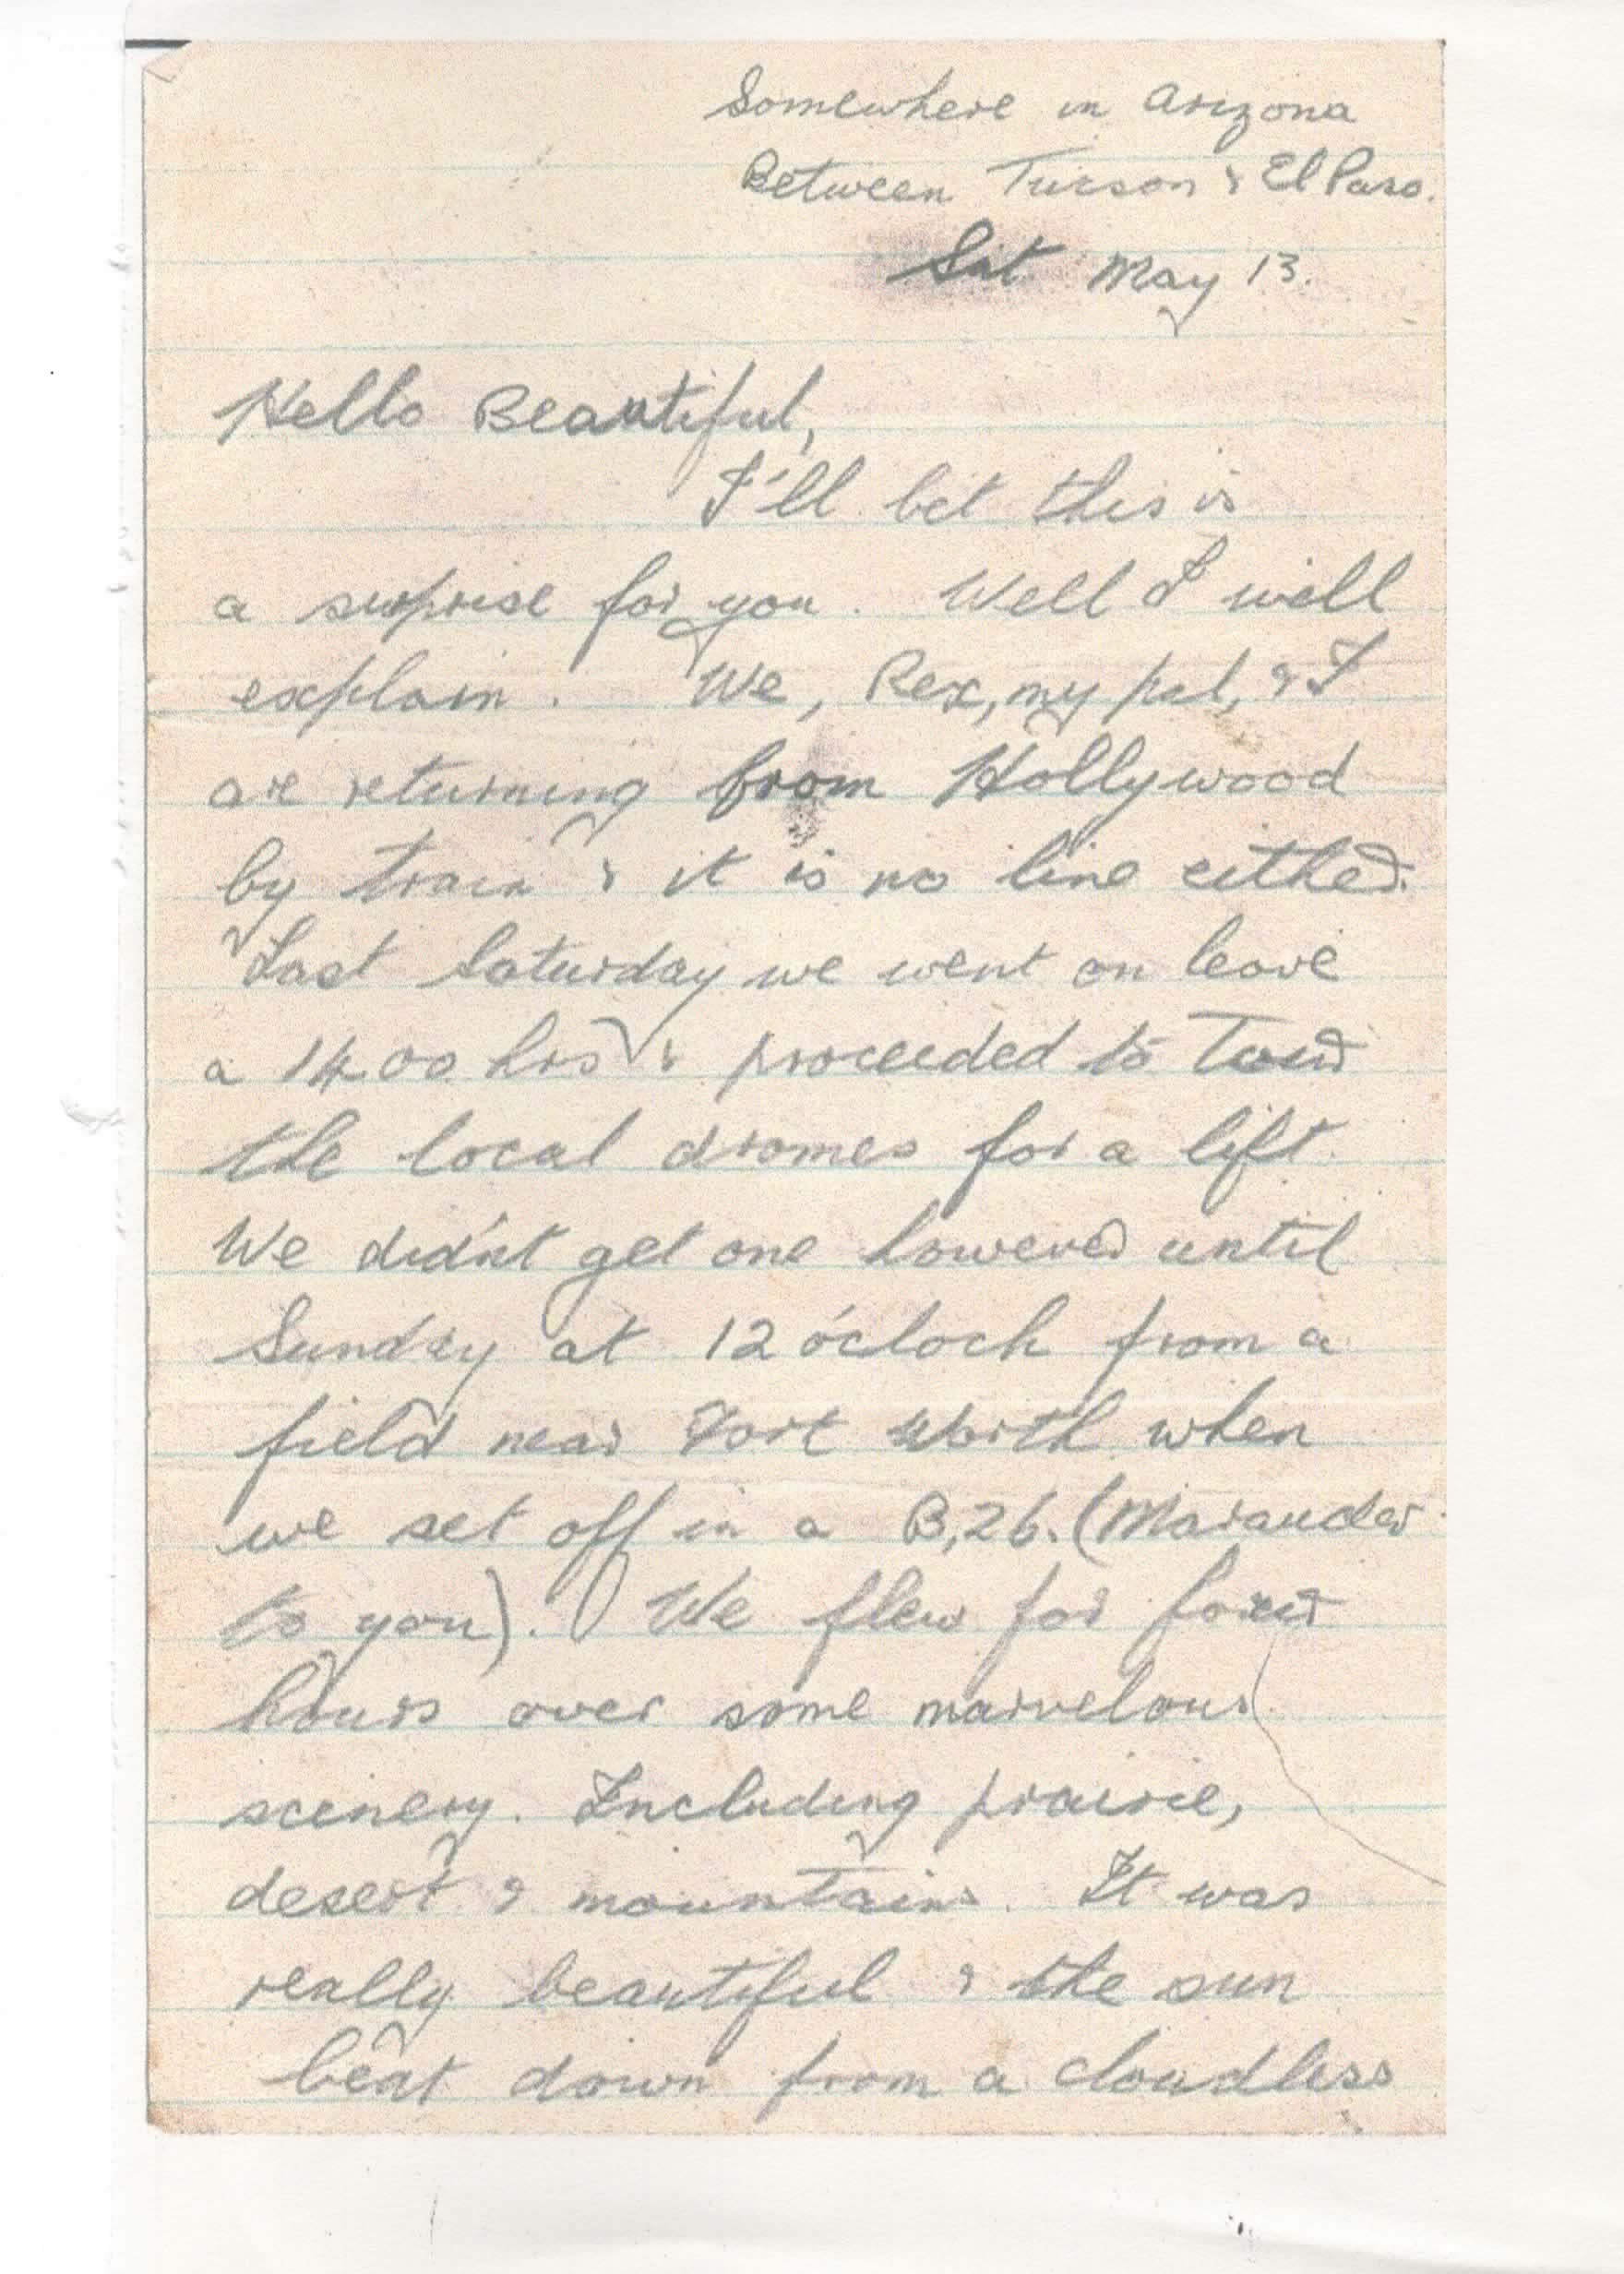 Somewhere in Arizona
Between Tucson & El Paso.
Sat May 13.
Hello Beautiful,
I'll bet this is
a surprise for you. Well I will
explain. We, Rex, my pal, & I
are returning from Hollywood
by train & it is no line either.
Last Saturday we went on leave
a 1400 hrs & proceeded to tour
the local dromes for a lift.
We didn't get one however until
Sunday at 12 o'cloch from a
field near Fort Worth when
we set off in a B,26. (Marauder
to you). We flew for four
hours over some marvelous
scenery. Including prairie,
desert & mountains. It was
really beautiful & the sun
beat down from a cloudless